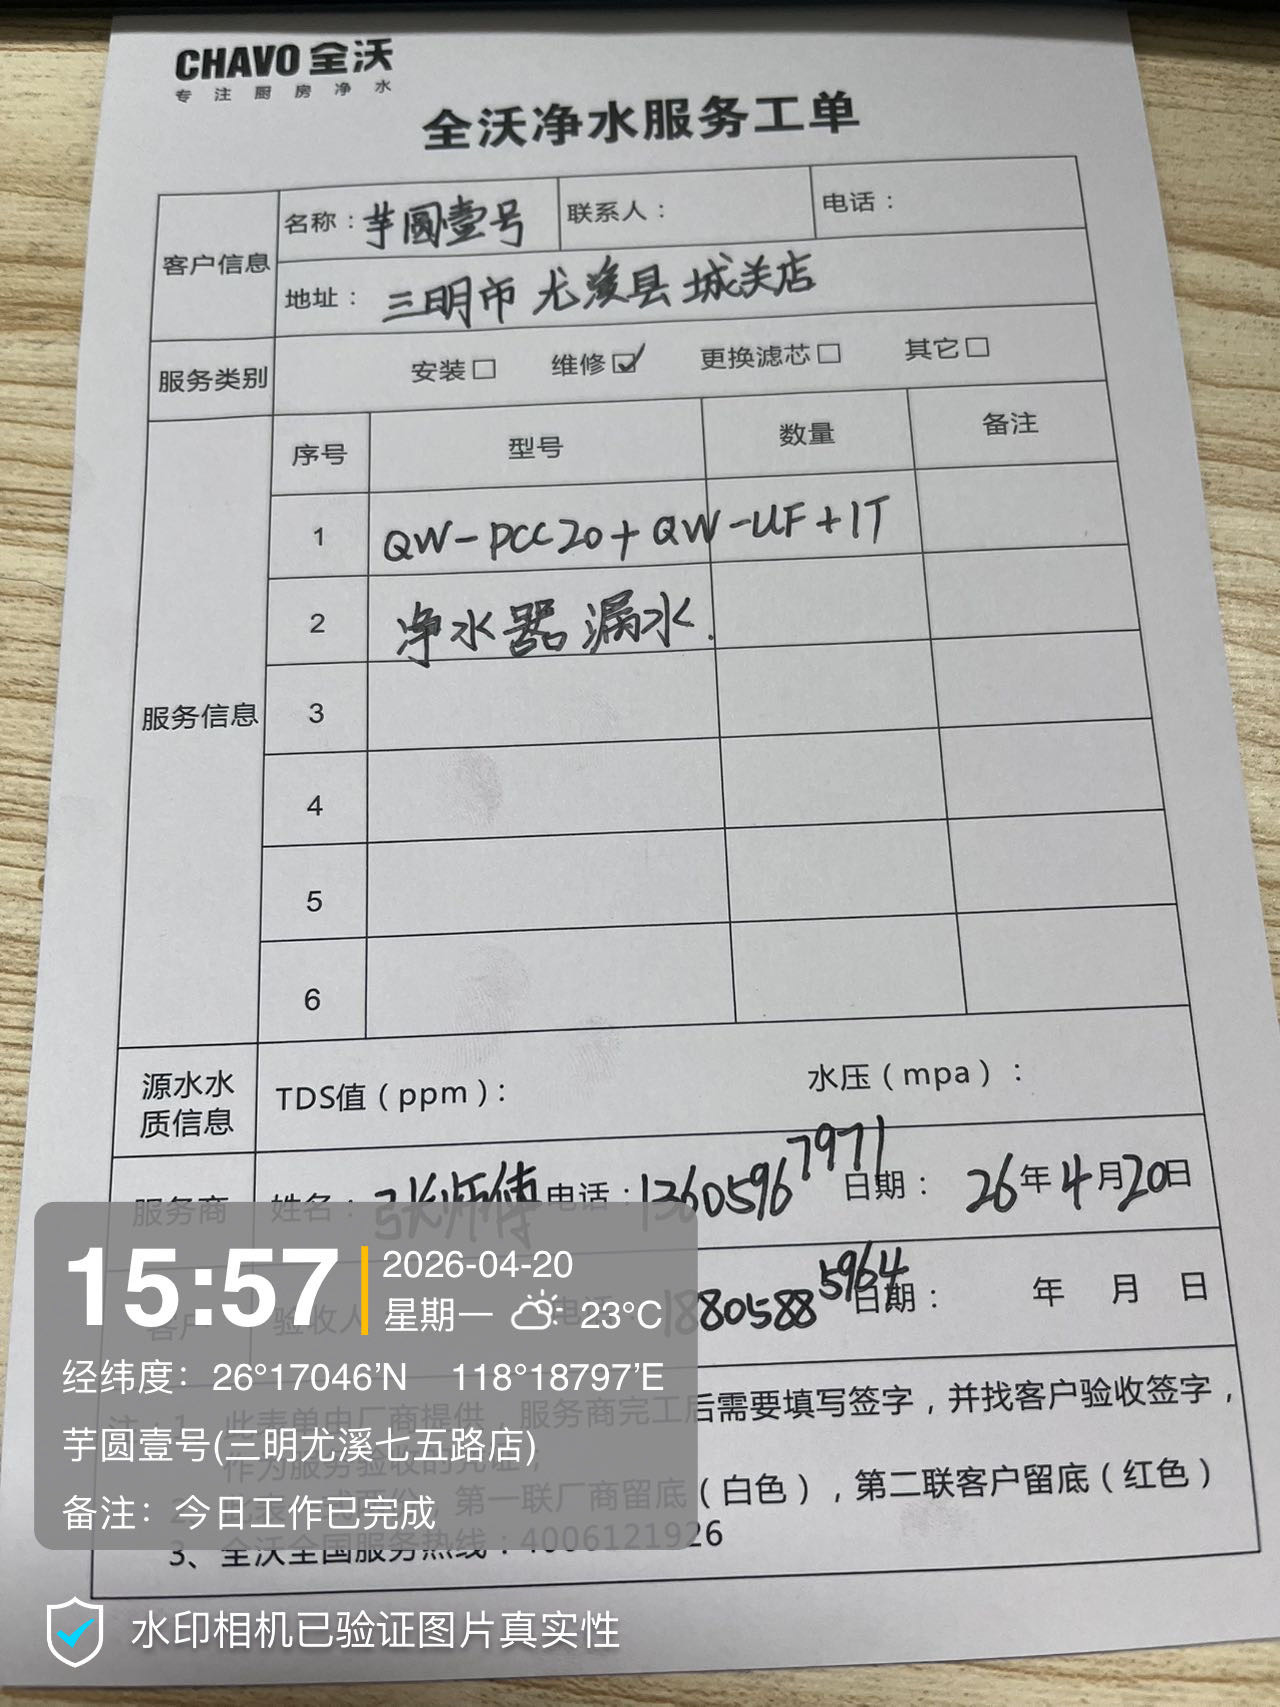 CHAVO 全沃
专注厨房净水
全沃净水服务工单
客户信息
名称：芋圆壹号 联系人： 电话：
地址：三明市尤溪县城关店
服务类别 安装□ 维修☑ 更换滤芯□ 其它□
服务信息
序号 型号 数量 备注
1 QW-PCC20+QW-UF+1T
2 净水器漏水.
3
4
5
6
源水水质信息 TDS值（ppm）： 水压（mpa）：
服务商 姓名：张师傅 电话：13605967971 日期：26年4月20日
客户 验收人 电话 18805885964 日期： 年 月 日
注：1、此表单由厂商提供，服务商完工后需要填写签字，并找客户验收签字，
作为服务验收的凭证；
2、此表一式两份，第一联厂商留底（白色），第二联客户留底（红色）
3、全沃全国服务热线：4006121926
15:57
2026-04-20
星期一 23°C
经纬度：26°17046'N 118°18797'E
芋圆壹号(三明尤溪七五路店)
备注：今日工作已完成
水印相机已验证图片真实性